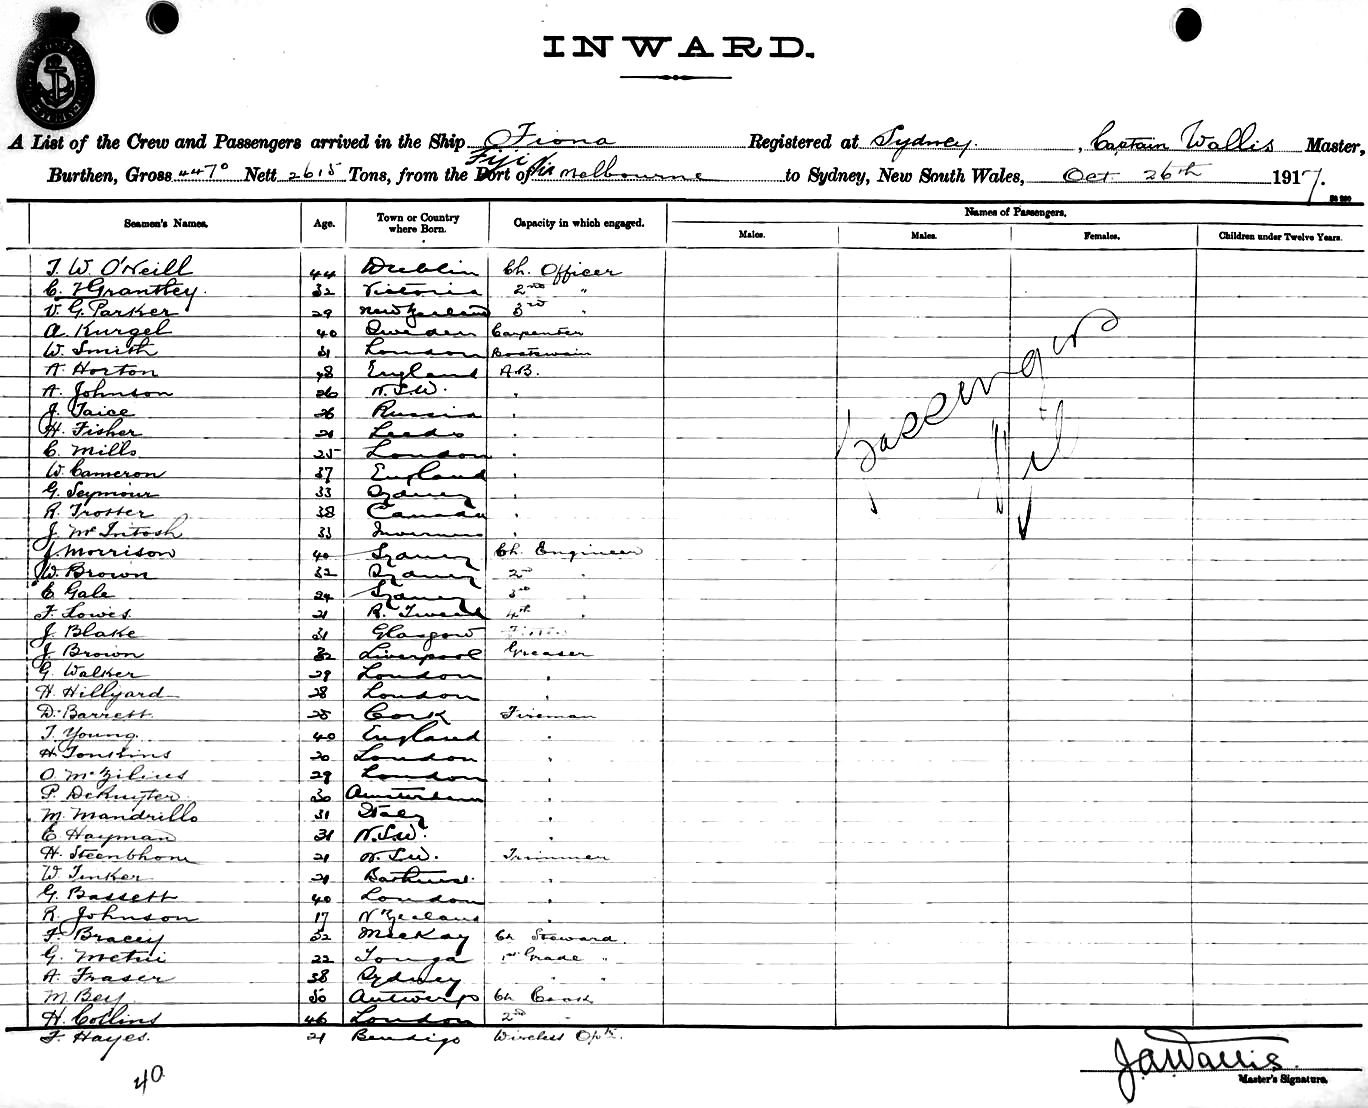 INWARD.
A List of the Crew and Passengers arrived in the Ship Fiona Registered at Sydney, Captain Wallis Master,
Burthen, Gross 4470 Nett 2615 Tons, from the Port of Fiji via Melbourne to Sydney, New South Wales, Oct 26th 1917.
Seamen's Names. Age. Town or Country where Born. Capacity in which engaged. Names of Passengers.
Males. Males. Females. Children under Twelve Years.
T. W. O'Neill 44 Dublin Ch. Officer
C. Grantley 32 Victoria 2nd "
V. G. Parker 29 New Zealand 3rd "
A. Kurgel 40 Sweden Carpenter
W. Smith 31 London Boatswain
A. Horton 48 England A.B.
A. Johnson 26 N.S.W. "
J. Taice 26 Russia "
H. Fisher 21 Leeds "
C. Mills 25 London "
W. Cameron 37 England "
G. Seymour 33 Sydney "
R. Trotter 38 Canada "
J. McIntosh 33 Inverness "
J. Morrison 40 Sydney Ch. Engineer
W. Brown 32 Sydney 2nd "
E. Gale 24 Sydney 3rd "
F. Lowes 21 R. Tweed 4th "
J. Blake 31 Glasgow
J. Brown 32 Liverpool Greaser
G. Walker 29 London "
H. Hillyard 28 London "
D. Barrett 25 Cork Fireman
T. Young 40 England "
H. Tomkins 20 London "
O. 29 London "
P. DeRuyter 30 Amsterdam "
M. Mandrillo 31 Italy "
E. Hayman 31 N.S.W. "
H. Steenbhom 21 N.S.W. Trimmer
W. Tinker 21 Bathurst "
G. Bassett 40 London "
R. Johnson 17 N Zealand "
F. Bracey 32 MacKay Ch Steward
G. Metui 22 Tonga 1st Grade "
A. Fraser 38 Sydney " "
M. Bey 50 Antwerp Ch Cook
H. Collins 46 London 2nd "
F. Hayes. 21 Bendigo Wireless Optr.
Passengers
Nil
40
J A Wallis.
Master's Signature.